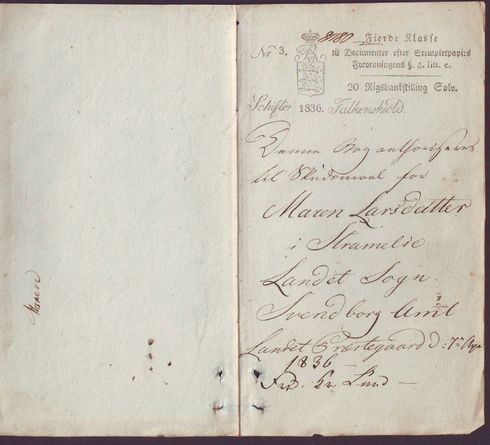 Maren
No 3.
8180 Fierde Klasse
til Documenter efter Stempletpapiirs
Forordningens §. 8. litt. c.
20 Rigsbankskilling Sølv.
Schifter 1836. Falkenskiold.
Denne Bog authoriseres
til Skudsmaal for
Maren Larsdatter
i Stramelie
Landet Sogn
Svendborg Amt
Landet Præstegaard d: 7de
1836
Lund